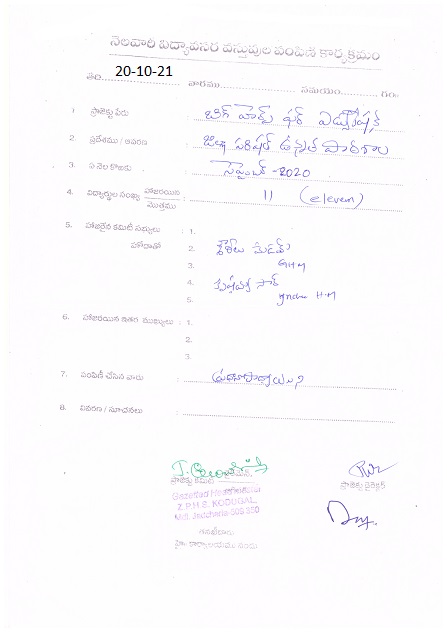 నెలవారి విద్యావసర వస్తువుల పంపిణి కార్యక్రమం
తేది. 20-10-21 వారము సమయం గం.
1. ప్రాజెక్టు పేరు : బిగ్ హెల్ప్ ఫర్ ఎడ్యుకేషన్
2. ప్రదేశము / ఆవరణ : జిల్లా పరిషత్ ఉన్నత పాఠశాల
3. ఏ నెల కొరకు : సెప్టెంబర్ -2020
4. విద్యార్థుల సంఖ్య హాజరయిన : 11 (eleven)
మొత్తము
5. హాజరైన కమిటీ సభ్యులు : 1.
హోదాతో 2. మేడమ్
3. GHM
4. సార్
5. H.M
6. హాజరయిన ఇతర ముఖ్యులు : 1.
2.
3.
7. పంపిణీ చేసిన వారు : ప్రధానోపాధ్యాయులు
8. వివరణ / సూచనలు :
ప్రాజెక్టు కమిటీ ప్రాజెక్టు డైరెక్టర్
Gazetted Headmaster
Z.P.H.S. KODUGAL,
Mdl. Jadcherla-509 350